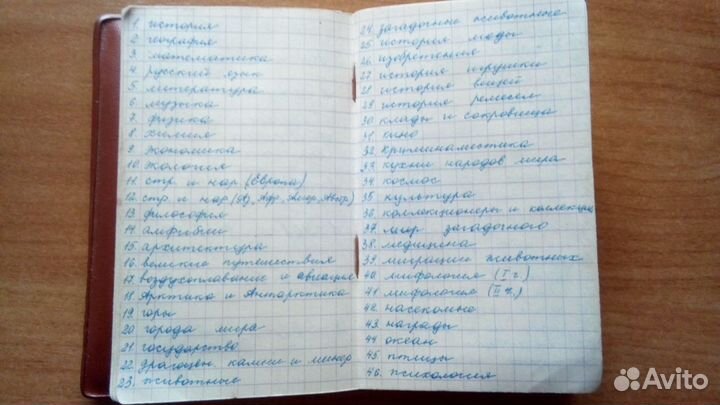 1. история
2. география
3. математика
4. русский язык
5. литература
6. музыка
7. физика
8. химия
9. экономика
10. экология
11. стр. и нар (Европа)
12. стр. и нар (Аз, Афр, Амер, Австр.)
13. философия
14. амфибии
15. архитектура
16. великие путешествия
17. воздухоплавание и авиация
18. Арктика и Антарктика
19. горы
20. города мира
21. государство
22. драгоцен. камни и минер
23. животные
24. загадочные животные
25. история моды
26. изобретения
27. история игрушки
28. история вещей
29. история ремесел
30. клады и сокровища
31. кино
32. криминалистика
33. кухни народов мира
34. космос
35. культура
36. коллекционеры и коллекции
37. мир загадочного
38. медицина
39. миграции животных
40. мифология (I ч.)
41. мифология (II ч.)
42. насекомые
43. награды
44. океан
45. птицы
46. психология
Avito